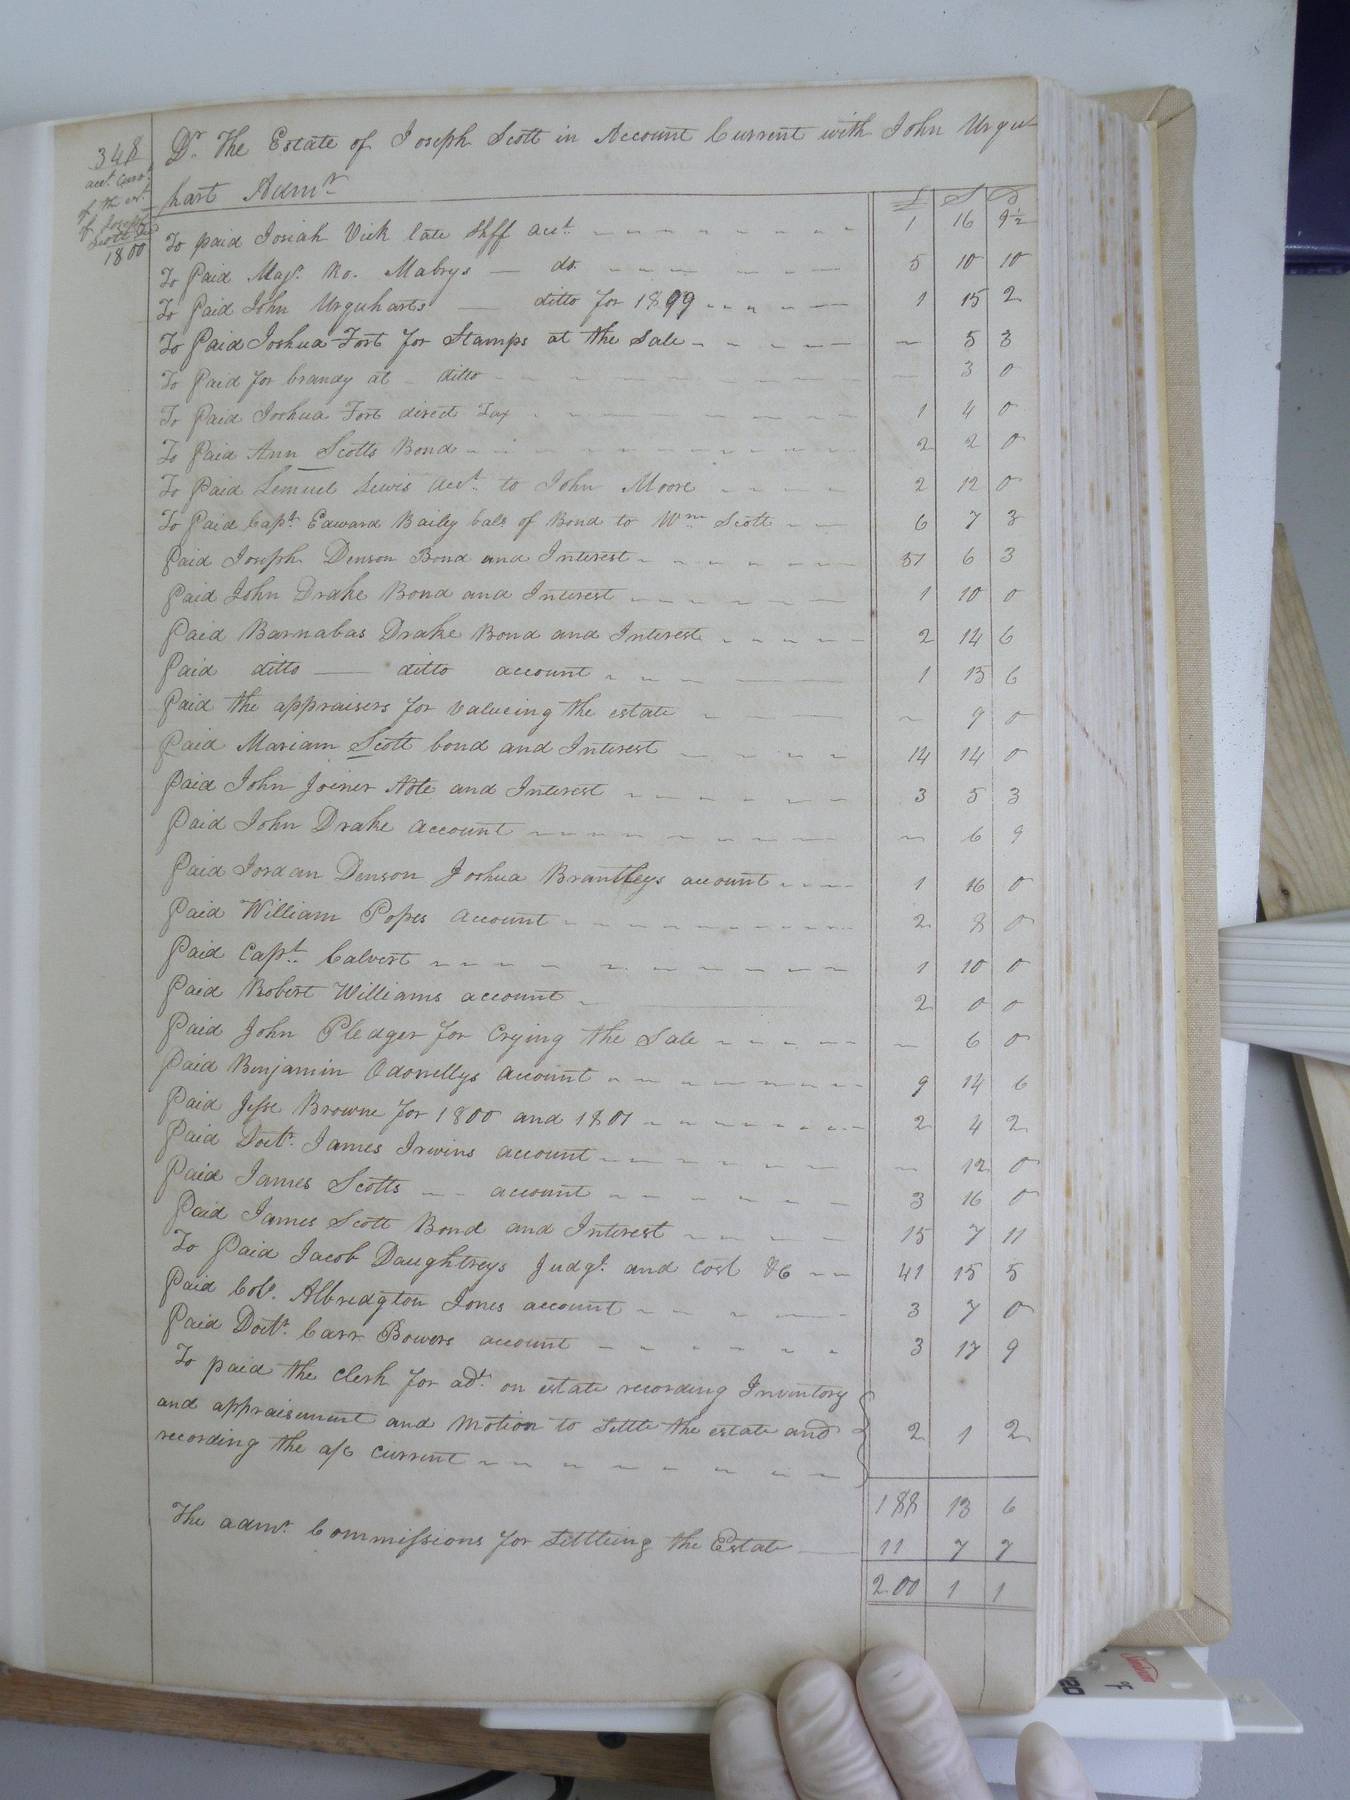 348
acct. Curr.t
of the est.
of Joseph
Scott Decd
1800
Dr. The Estate of Joseph Scott in Account Current with John Urqu-
hart Admr.
£ S D
To paid Josiah Vick late Shff acct. 1 16 9½
To Paid Majr. Ro. Mabrys — do. 5 10 10
To Paid John Urquharts — ditto for 1899 1 15 2
To Paid Joshua Fort for Stamps at the Sale — 5 3
To Paid for brandy at ditto — 3 0
To Paid Joshua Fort direct Tax 1 4 0
To Paid Ann Scotts Bond 2 2 0
To Paid Lemuel Lewis acct. to John Moore 2 12 0
To Paid Capt. Edward Baily bals of Bond to Wm. Scott 6 7 3
Paid Joseph Denson Bond and Interest 57 6 3
Paid John Drake Bond and Interest 1 10 0
Paid Barnabas Drake Bond and Interest 2 14 6
Paid ditto — ditto account 1 13 6
Paid the appraisers for valueing the estate — 9 0
Paid Mariam Scott bond and Interest 14 14 0
Paid John Joiner Note and Interest 3 5 3
Paid John Drake account — 6 9
Paid Jordan Denson Joshua Brantleys account 1 16 0
Paid William Popes account 2 8 0
Paid Capt. Calvert 1 10 0
Paid Robert Williams account 2 0 0
Paid John Pledger for Crying the Sale — 6 0
Paid Benjamin Odonellys account 9 14 6
Paid Jesse Browne for 1800 and 1801 2 4 2
Paid Doctr. James Irwins account — 12 0
Paid James Scotts — account 3 16 0
Paid James Scott Bond and Interest 15 7 11
To Paid Jacob Daughtreys Judgt. and Cost &c 41 15 5
Paid Colo. Albridgton Jones account 3 7 0
Paid Doctr. Carr Bowers account 3 17 9
To paid the Clerk for adt. on estate recording Inventory
and appraisement and Motion to Settle the estate and
recording the a/c Current 2 1 2
188 13 6
The admr. Commissions for Settleing the Estate 11 7 7
200 1 1